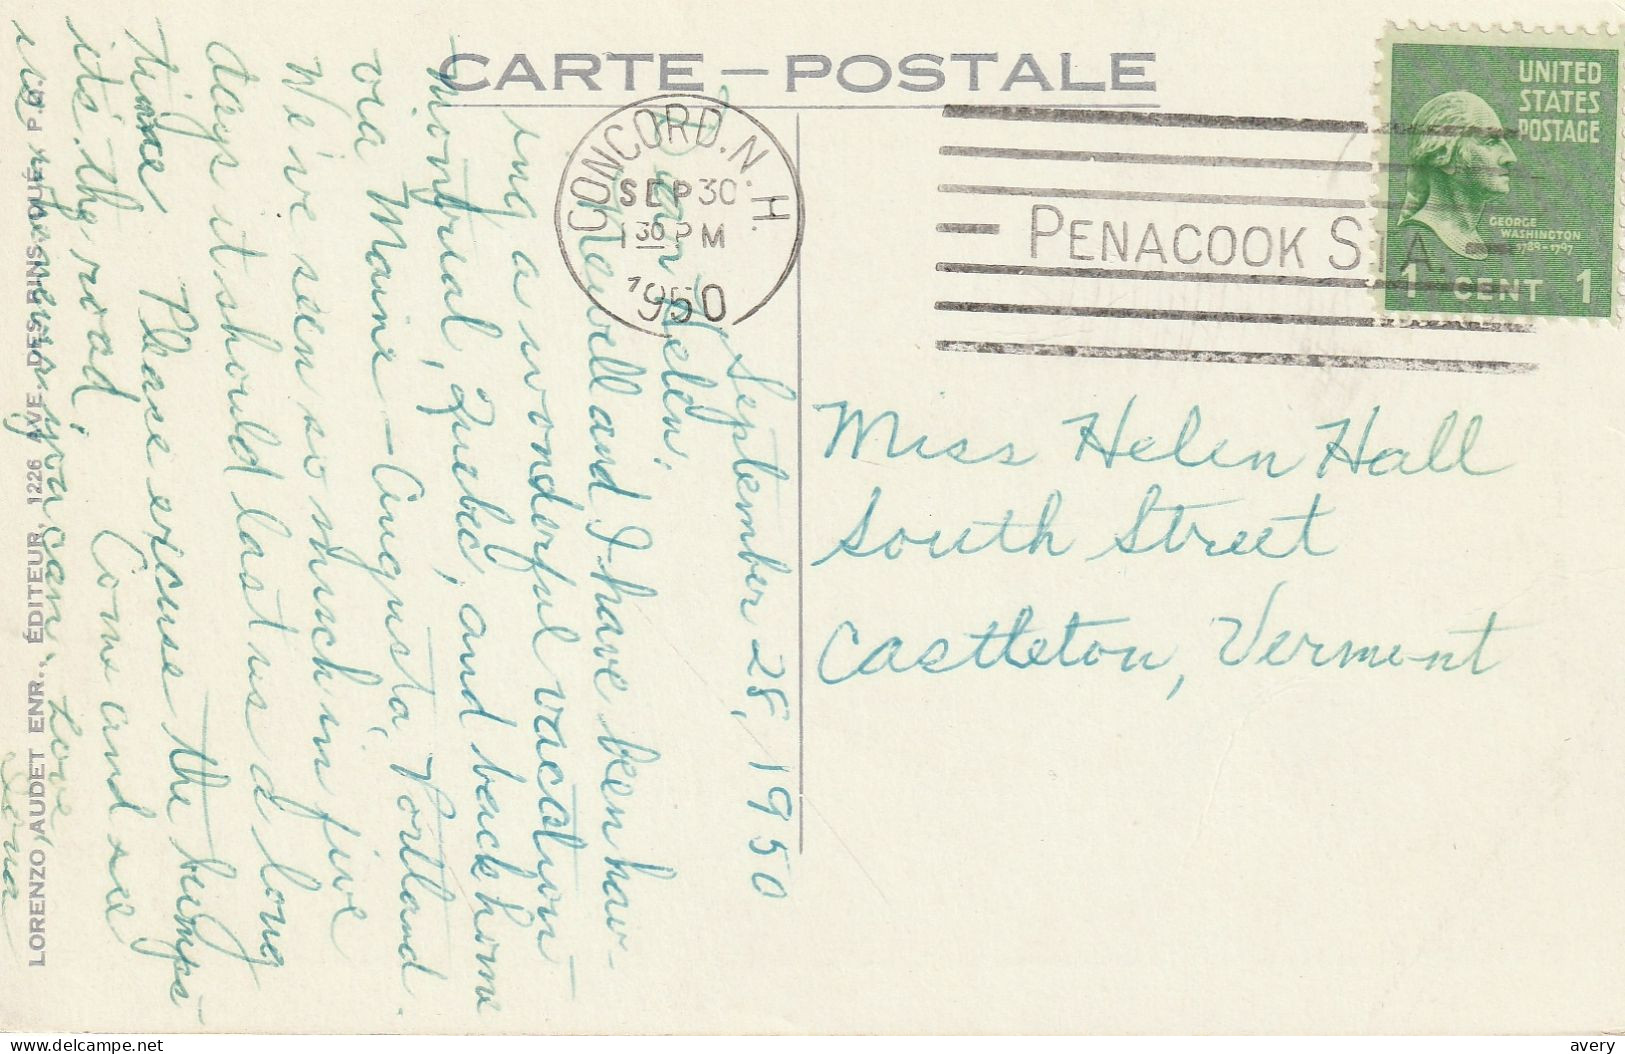 CARTE-POSTALE
CONCORD. N. H.
SEP 30
1 30 PM
1950
PENACOOK STA.
UNITED
STATES
POSTAGE
GEORGE
WASHINGTON
1789-1797
1 CENT 1
September 28, 1950
Dear Helen:
Newell and I have been hav-
ing a wonderful vacation
Montreal, Quebec, and back home
via Maine - Augusta, Portland.
We've seen so much in five
days it should last us a long
time. Please excuse the bumps
its' the road! Come and see
us
you can. Love
Miss Helen Hall
South Street
Castleton, Vermont
LORENZO AUDET ENR., ÉDITEUR, 1226 AVE. DES PINS, QUÉ. P.Q.
Delcampe.net
avery